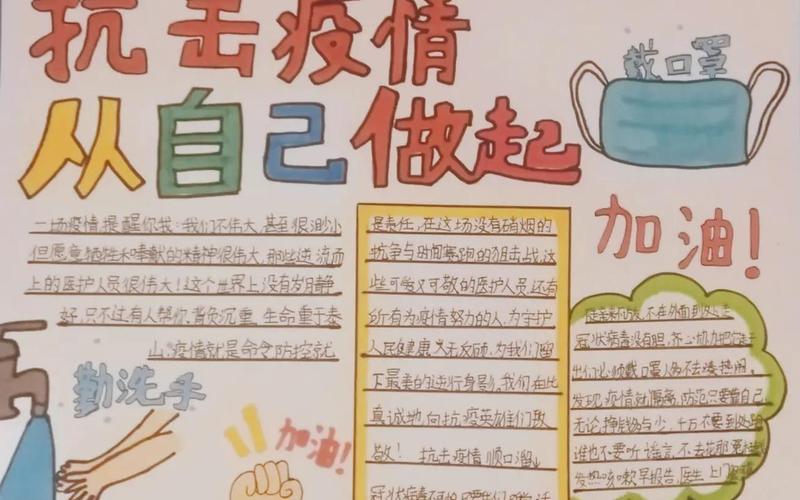 抗击疫情
从自己做起
戴口罩
加油!
一场疫情,提醒你我:我们不伟大,甚至很渺小
但愿意牺牲和奉献的精神很伟大,那些逆流而
上的医护人员很伟大!这个世界上没有岁月静
好,只不过有人帮你背负沉重。生命重于泰
山,疫情就是命令,防控就
是责任,在这场没有硝烟的
抗争与时间赛跑的狙击战,这
些可爱又可敬的医护人员,还有
所有为疫情努力的人,为守护
人民健康义无反顾,为我们留
下最美的逆行身影,我们在此
真诚地,向抗疫英雄们致
敬! 抗击疫情顺口溜
冠状病毒不可怕
不在外面到处走
冠状病毒没有胆,齐心协力把它
出们必须戴口罩,人多不去凑热闹。
发现疫情就
无论挣钱多与少,千万不要到处跑
谁也不要听谣言,不去
发热咳嗽早报告,医生上门
勤洗手
加油!